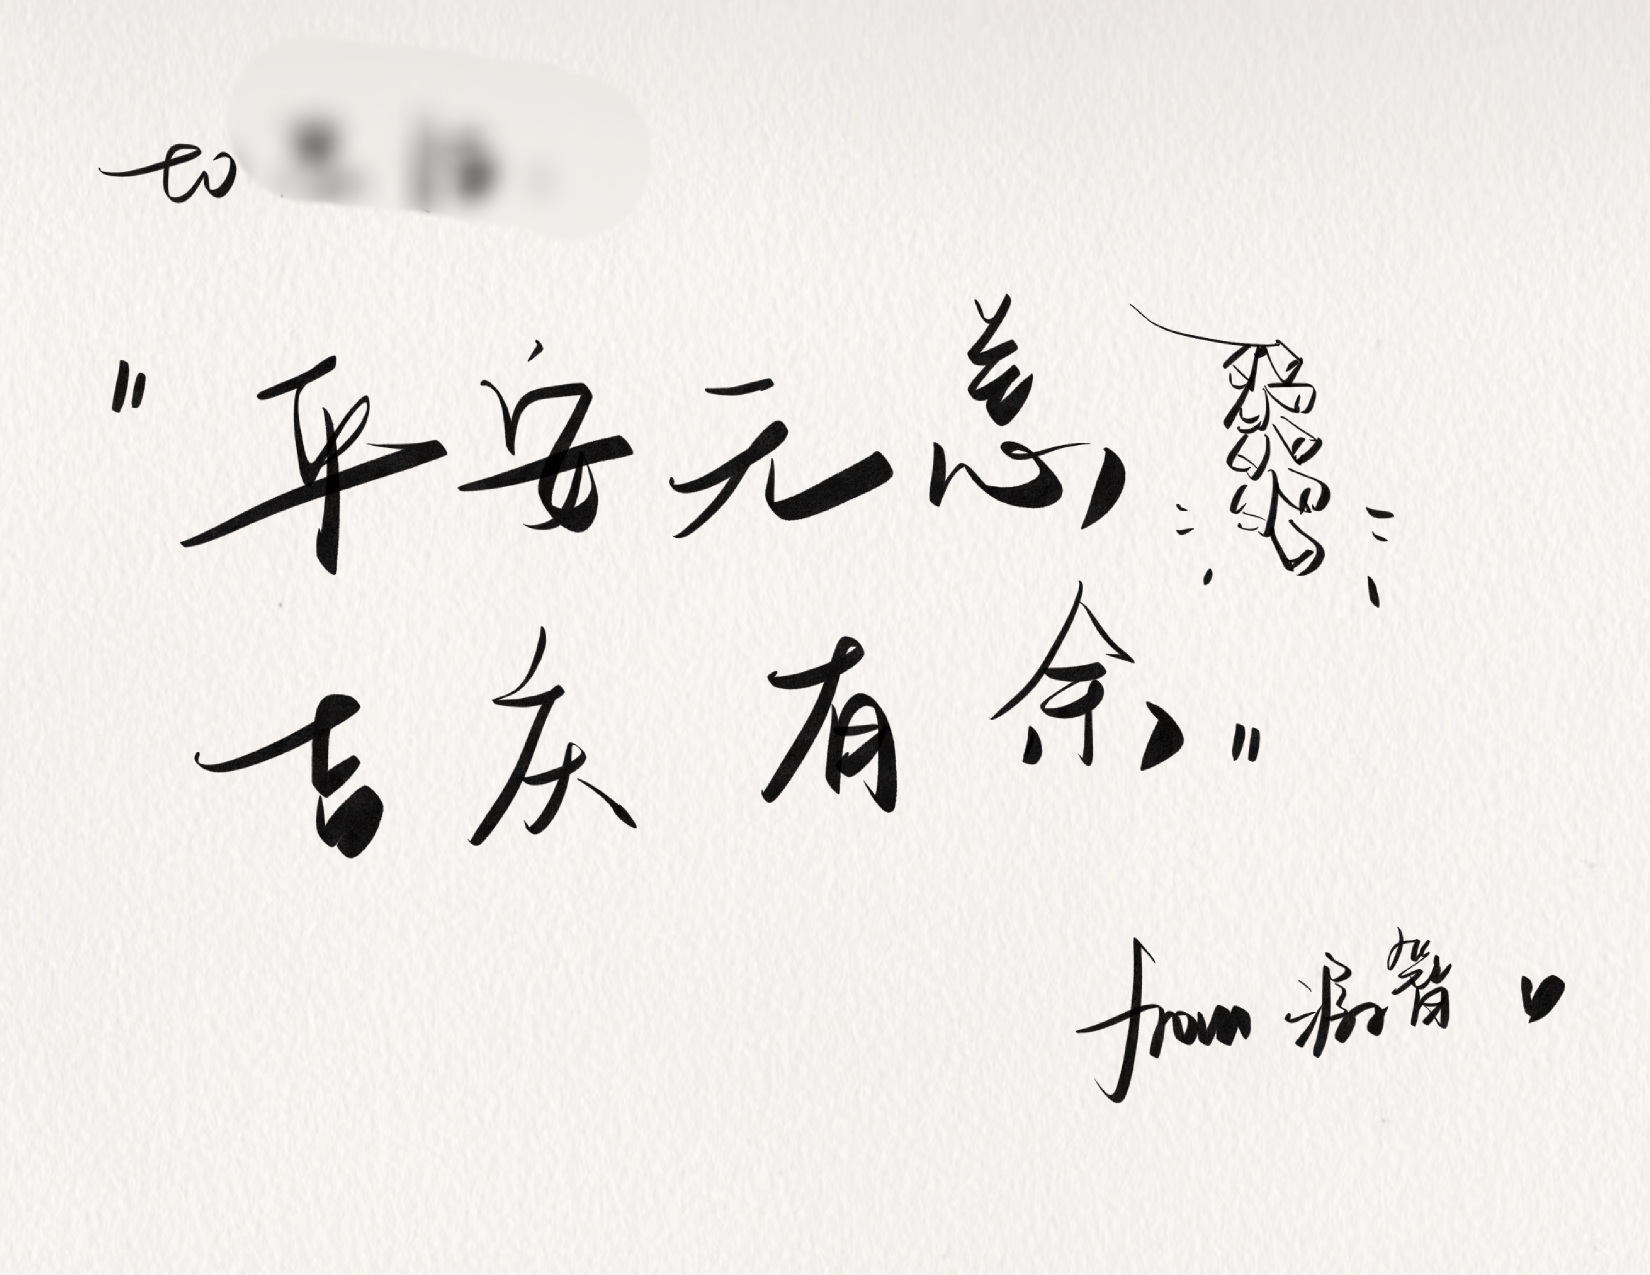 to
"平安无恙,
吉庆有余,"
from